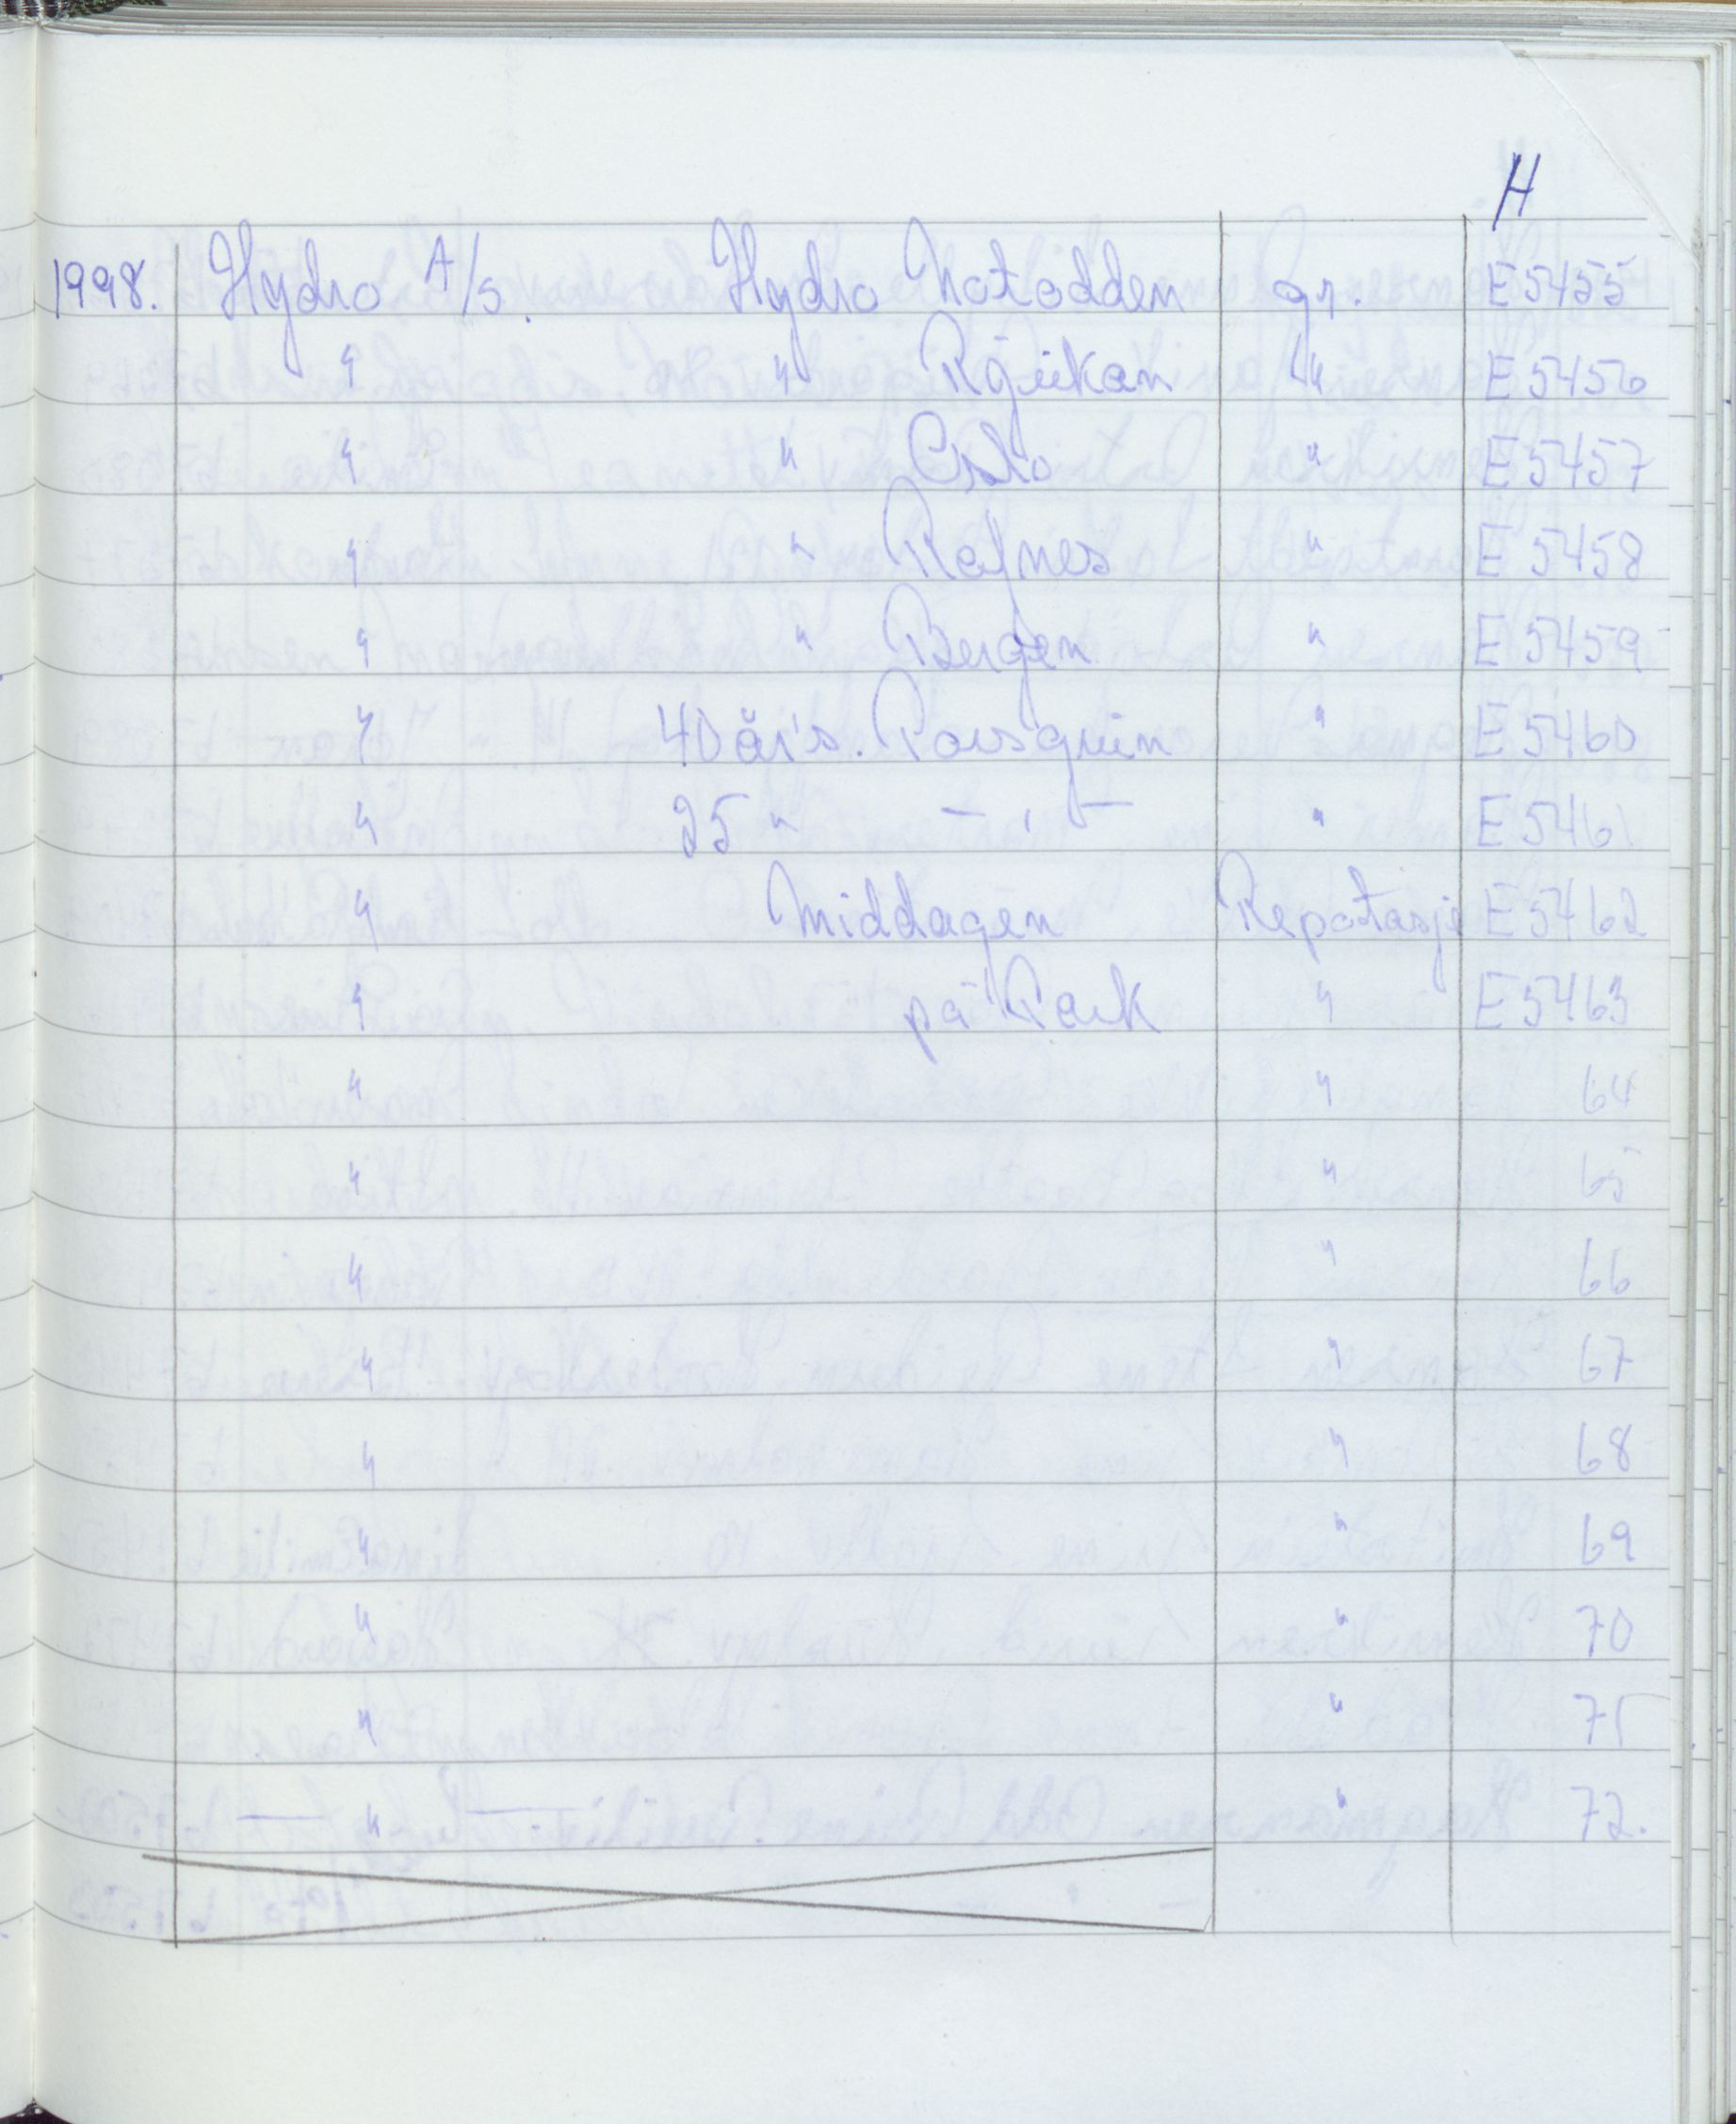 H
1998. Hydro A/s. Hydro Notodden gr. E5455
" " Rjukan " E5456
" " Oslo " E5457
" " Rafnes " E5458
" " Bergen " E5459
" 40 år's. Porsgrunn " E5460
" 25 " - " - " E5461
" Middagen Repotasje E5462
" på Park " E5463
" " 64
" " 65
" " 66
" " 67
" " 68
" " 69
" " 70
" " 71
— " — " 72.